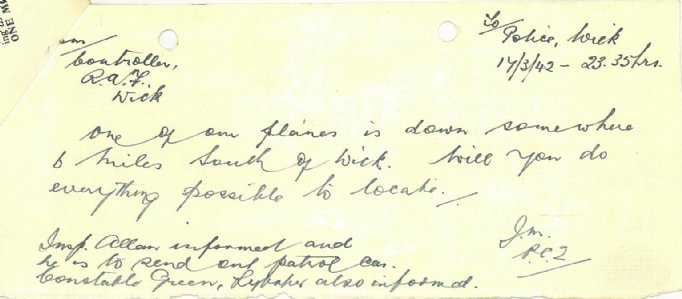 To
Police, Wick
17/3/42 - 23.35hrs.
Controller,
R.A.F.
Wick
One of our planes is down somewhere
6 miles South of Wick. Will you do
everything possible to locate.
J.M.
P.C.2
Insp. Allan informed and
he is to send out patrol car.
Constable Green, Lybster also informed.